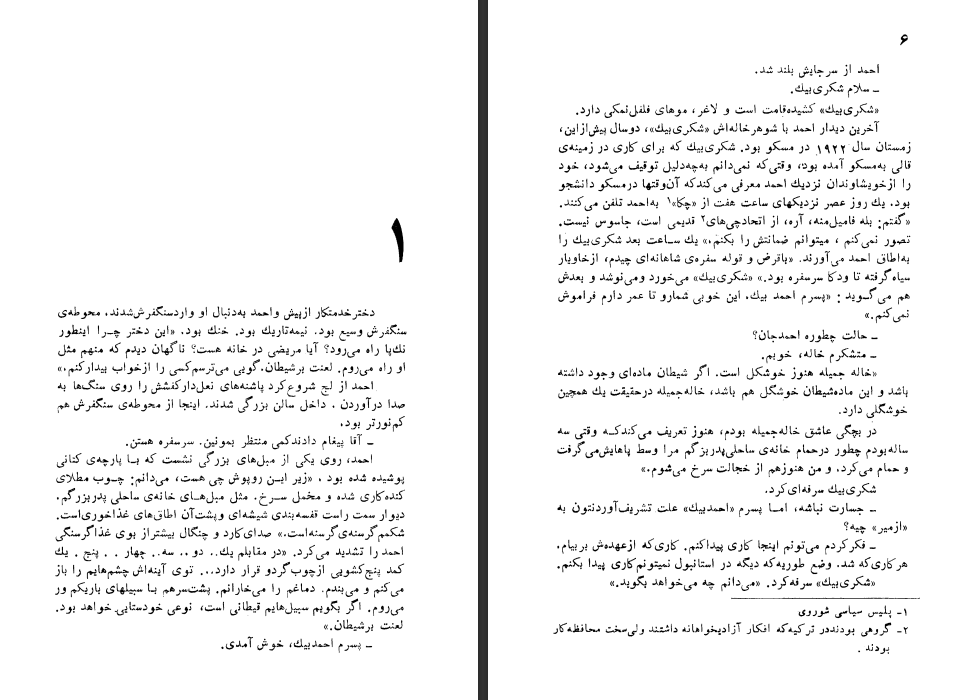 ۱
دخترخدمتکار ازپیش واحمد به‌دنبال او واردسنگفرش‌شدند. محوطه‌ی
سنگفرش وسیع بود. نیمه‌تاریك بود. خنك بود. «این دختر چــرا اینطور
نك‌پا راه می‌رود؟ آیا مریضی در خانه هست؟ ناگهان دیدم که منهم مثل
او راه می‌روم. لعنت برشیطان.گویی می‌ترسم‌کسی را ازخواب بیدارکنم.»
احمد از لج شروع‌کرد پاشنه‌های نعل‌دارکفشش را روی سنگ‌ها به
صدا درآوردن . داخل سالن بزرگی شدند. اینجا از محوطه‌ی سنگفرش هم
کم‌نورتر بود.
ــ آقا پیغام دادندکمی منتظر بمونین. سرسفره هستن.
احمد، روی یکی از مبل‌های بزرگی نشست که بــا پارچه‌ی کتانی
پوشیده شده بود . «زیر ایــن روپوش چی هست، می‌دانم: چــوب مطلای
کنده‌کاری شده و مخمل ســرخ. مثل مبل‌هــای خانه‌ی ساحلی پدربزرگم.
دیوار سمت راست قفسه‌بندی شیشه‌ای وپشت‌آن اطاق‌های غذاخوری‌است.
شکمم گرسنه‌ی‌گرسنه‌است.» صدای‌کارد و چنگال بیشتراز بوی غذاگرسنگی
احمد را تشدید می‌کرد. «در مقابلم یك.. دو .. سه.. چهار . . پنج . یك
کمد پنج‌کشویی ازچوب‌گردو قرار دارد... توی آینه‌اش چشم‌هایم را باز
می‌کنم و می‌بندم. دماغم را می‌خارانم. پشت‌سرهم بــا سبیلهای باریکم ور
می‌روم. اگر بگویم سبیل‌هایم قیطانی است، نوعی خودستایی خواهد بود.
لعنت برشیطان.»
ــ پسرم احمدبیك، خوش آمدی.
۶
احمد از سرجایش بلند شد.
ــ سلام شکری‌بیك.
«شکری‌بیك» کشیده‌قامت است و لاغر، موهای فلفل‌نمکی دارد.
آخرین دیدار احمد با شوهرخاله‌اش «شکری‌بیك»، دوسال پیش‌ازاین،
زمستان سال ۱۹۲۲ در مسکو بود. شکری‌بیك که برای کاری در زمینه‌ی
قالی به‌مسکو آمده بود، وقتی‌که نمی‌دانم به‌چه‌دلیل توقیف می‌شود، خود
را ازخویشاوندان نزدیك احمد معرفی می‌کندکه آن‌وقتها درمسکو دانشجو
بود. یك روز عصر نزدیکهای ساعت هفت از «چکا»۱ به‌احمد تلفن می‌کنند.
«گفتم: بله فامیل‌منه، آره، از اتحادچی‌های۲ قدیمی است، جاسوس نیست.
تصور نمی‌کنم ، میتوانم ضمانتش را بکنم.» یك ســاعت بعد شکری‌بیك را
به‌اطاق احمد می‌آورند. «باقرض و قوله سفره‌ی شاهانه‌ای چیدم، ازخاویار
سیاه‌گرفته تا ودکا سرسفره بود.» «شکری‌بیك» می‌خورد ومی‌نوشد و بعدش
هم می‌گــوید : «پسرم احمد بیك. این خوبی شمارو تا عمر دارم فراموش
نمی‌کنم.»
ــ حالت چطوره احمدجان؟
ــ متشکرم خاله، خوبم.
«خاله جمیله هنوز خوشکل است. اگر شیطان ماده‌ای وجود داشته
باشد و این ماده‌شیطان خوشگل هم باشد، خاله‌جمیله درحقیقت یك همچین
خوشگلی دارد.
در بچگی عاشق خاله‌جمیله بودم، هنوز تعریف می‌کندکــه وقتی سه
ساله‌بودم چطور درحمام خانه‌ی ساحلی‌پدربزگم مرا وسط پاهایش‌می‌گرفت
و حمام می‌کرد. و من هنوزهم از خجالت سرخ می‌شوم.»
شکری‌بیك سرفه‌ای‌کرد.
ــ جسارت نباشه، امــا پسرم «احمدبیك» علت تشریف‌آوردنتون به
«ازمیر» چیه؟
ــ فکرکردم می‌تونم اینجا کاری پیداکنم. کاری‌که ازعهده‌ش بربیام.
هرکاری‌که شد. وضع طوریه‌که دیگه در استانبول نمیتونم‌کاری پیدا بکنم.
«شکری‌بیك» سرفه‌کرد. «می‌دانم چه می‌خواهد بگوید.»
۱ـ پلیس سیاسی شوروی
۲ـ گروهی بودنددر ترکیه‌که افکار آزادیخواهانه داشتند ولی‌سخت محافظه‌کار
بودند .